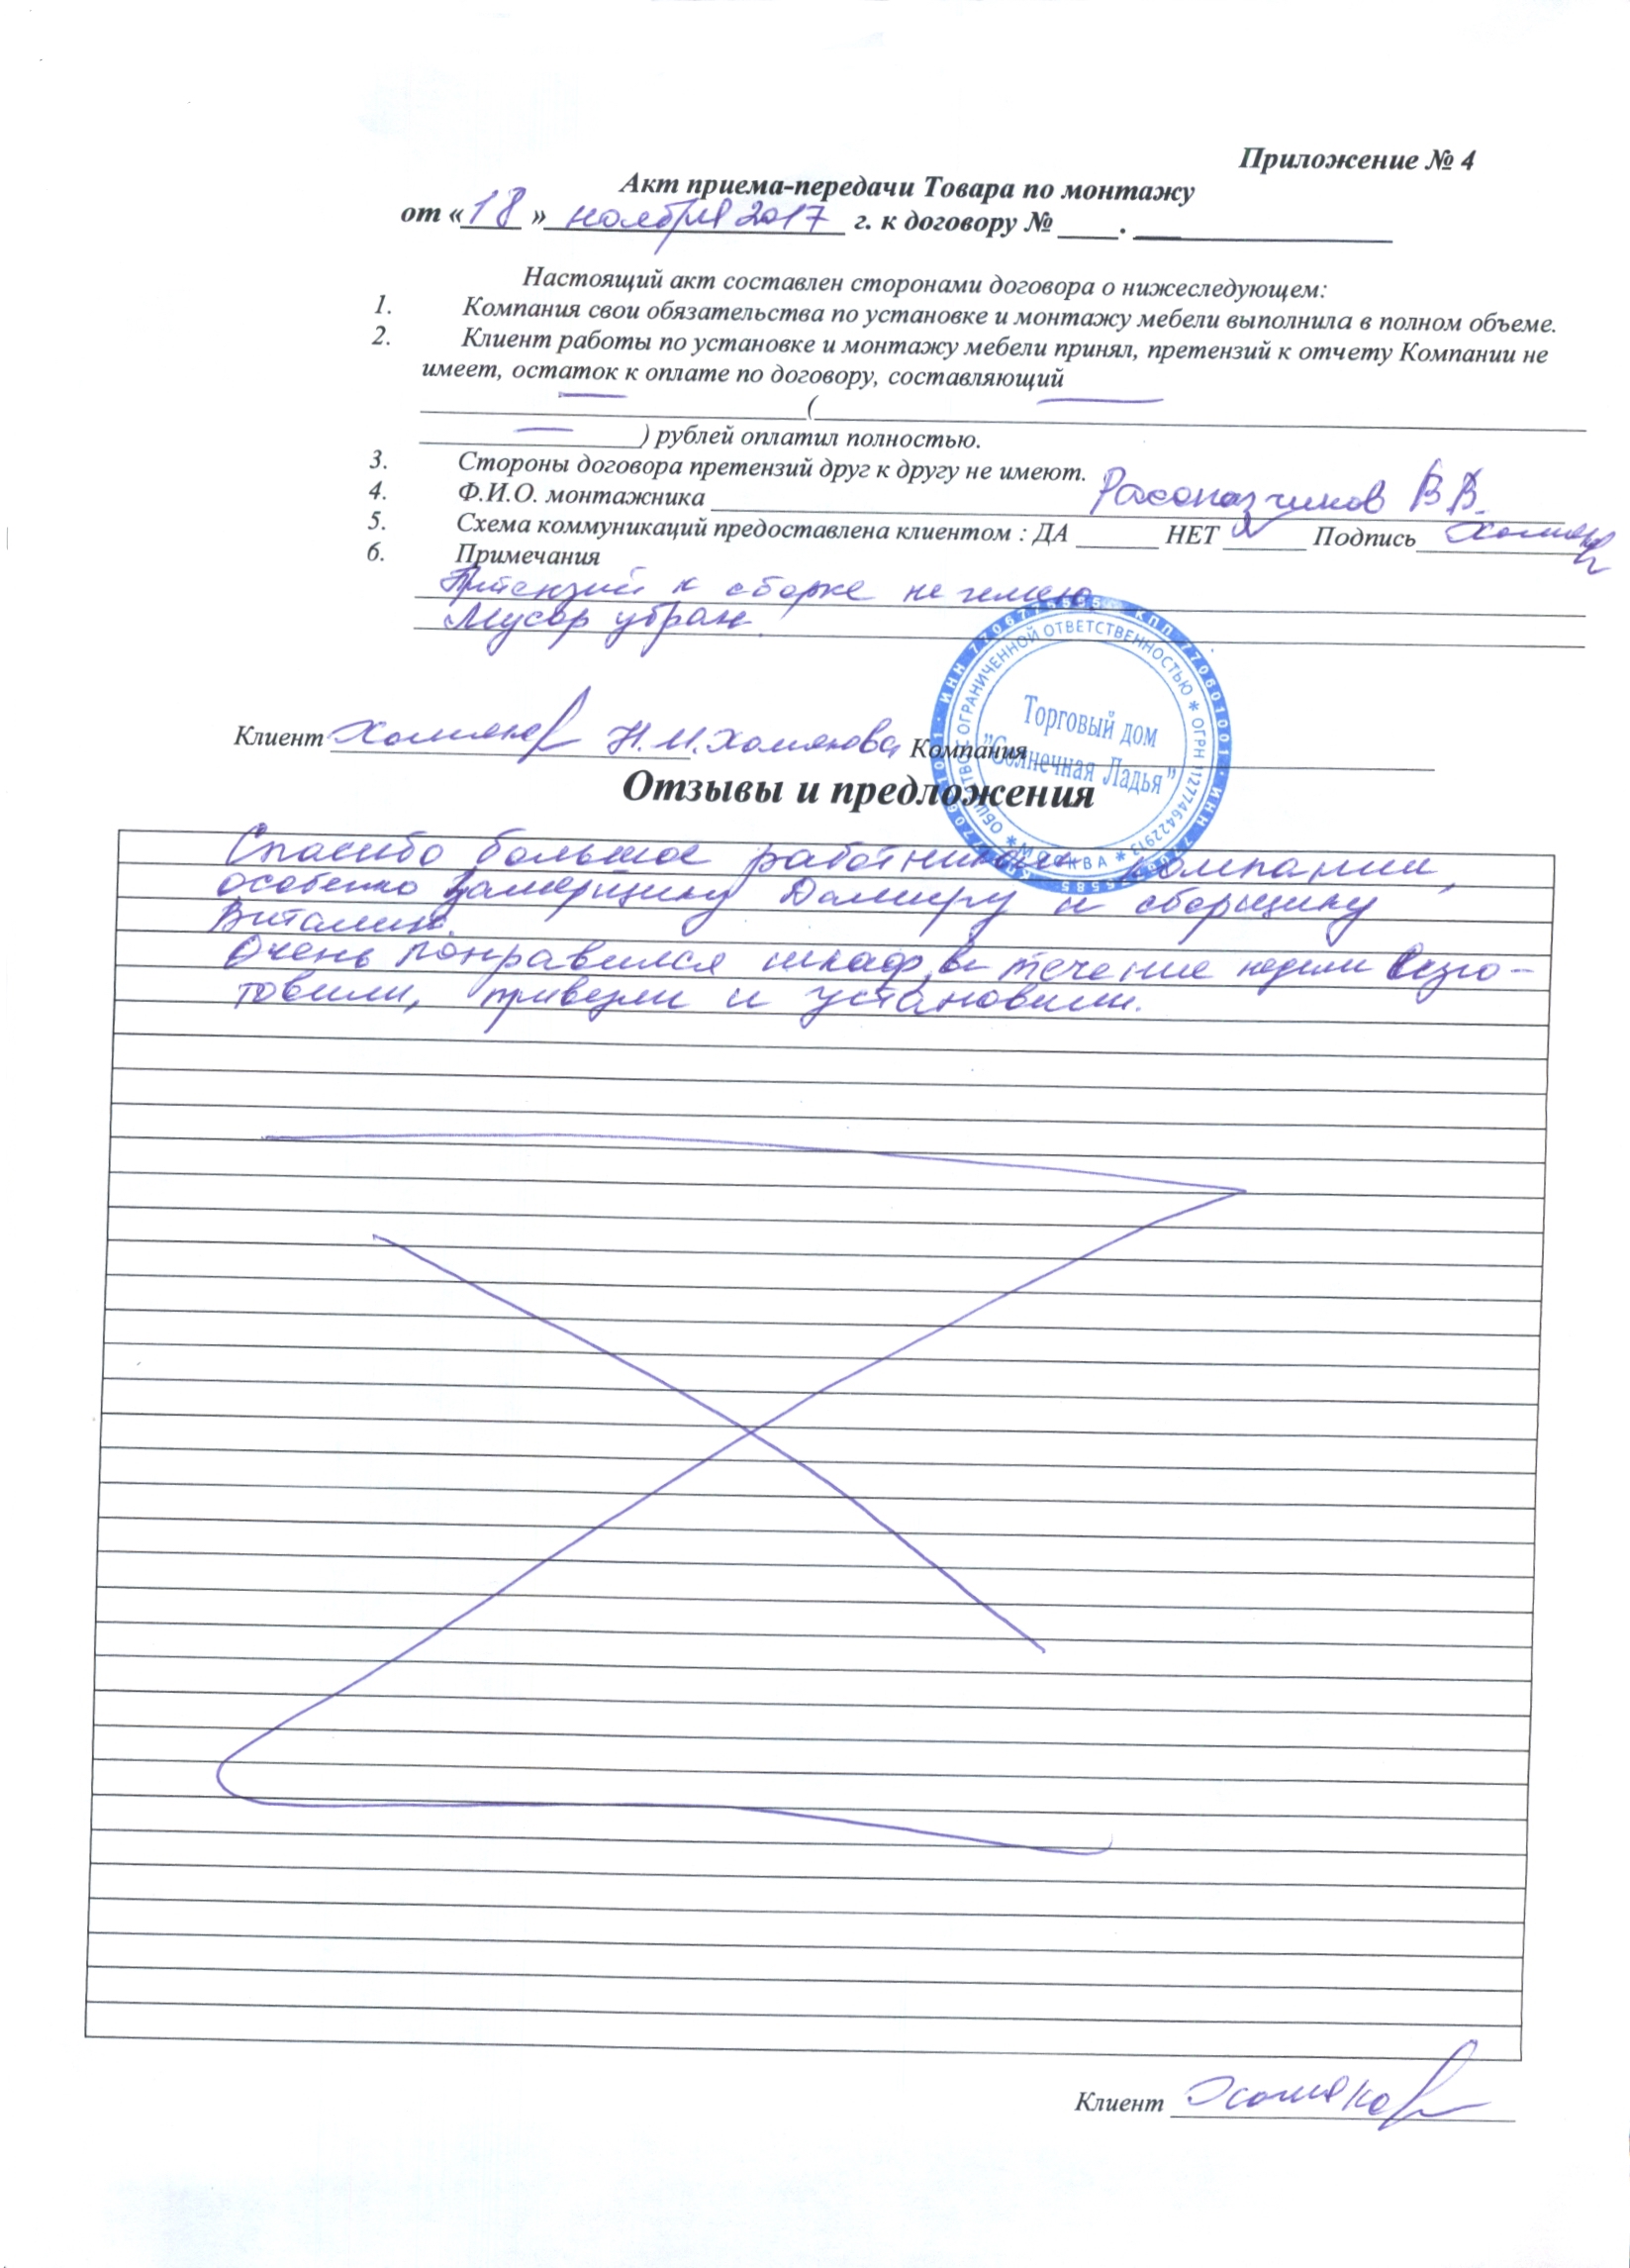 Приложение № 4
Акт приема-передачи Товара по монтажу
от «18» ноября 2017 г. к договору № ____. ____
Настоящий акт составлен сторонами договора о нижеследующем:
1. Компания свои обязательства по установке и монтажу мебели выполнила в полном объеме.
2. Клиент работы по установке и монтажу мебели принял, претензий к отчету Компании не
имеет, остаток к оплате по договору, составляющий
(
) рублей оплатил полностью.
3. Стороны договора претензий друг к другу не имеют.
4. Ф.И.О. монтажника Рассказчиков В.В.
5. Схема коммуникаций предоставлена клиентом : ДА ______ НЕТ ______ Подпись
6. Примечания
Претензий к сборке не имею.
Мусор убран.
Клиент Н.И. Хомякова Компания
ОБЩЕСТВО С ОГРАНИЧЕННОЙ ОТВЕТСТВЕННОСТЬЮ * ОГРН 1127746422913 * МОСКВА *
Торговый дом
"Солнечная Ладья"
Отзывы и предложения
Спасибо большое работникам компании,
особенно замерщику Дамиру и сборщику
Виталию.
Очень понравился шкаф, в течение недели изго-
товили, привезли и установили.
Клиент Хомякова